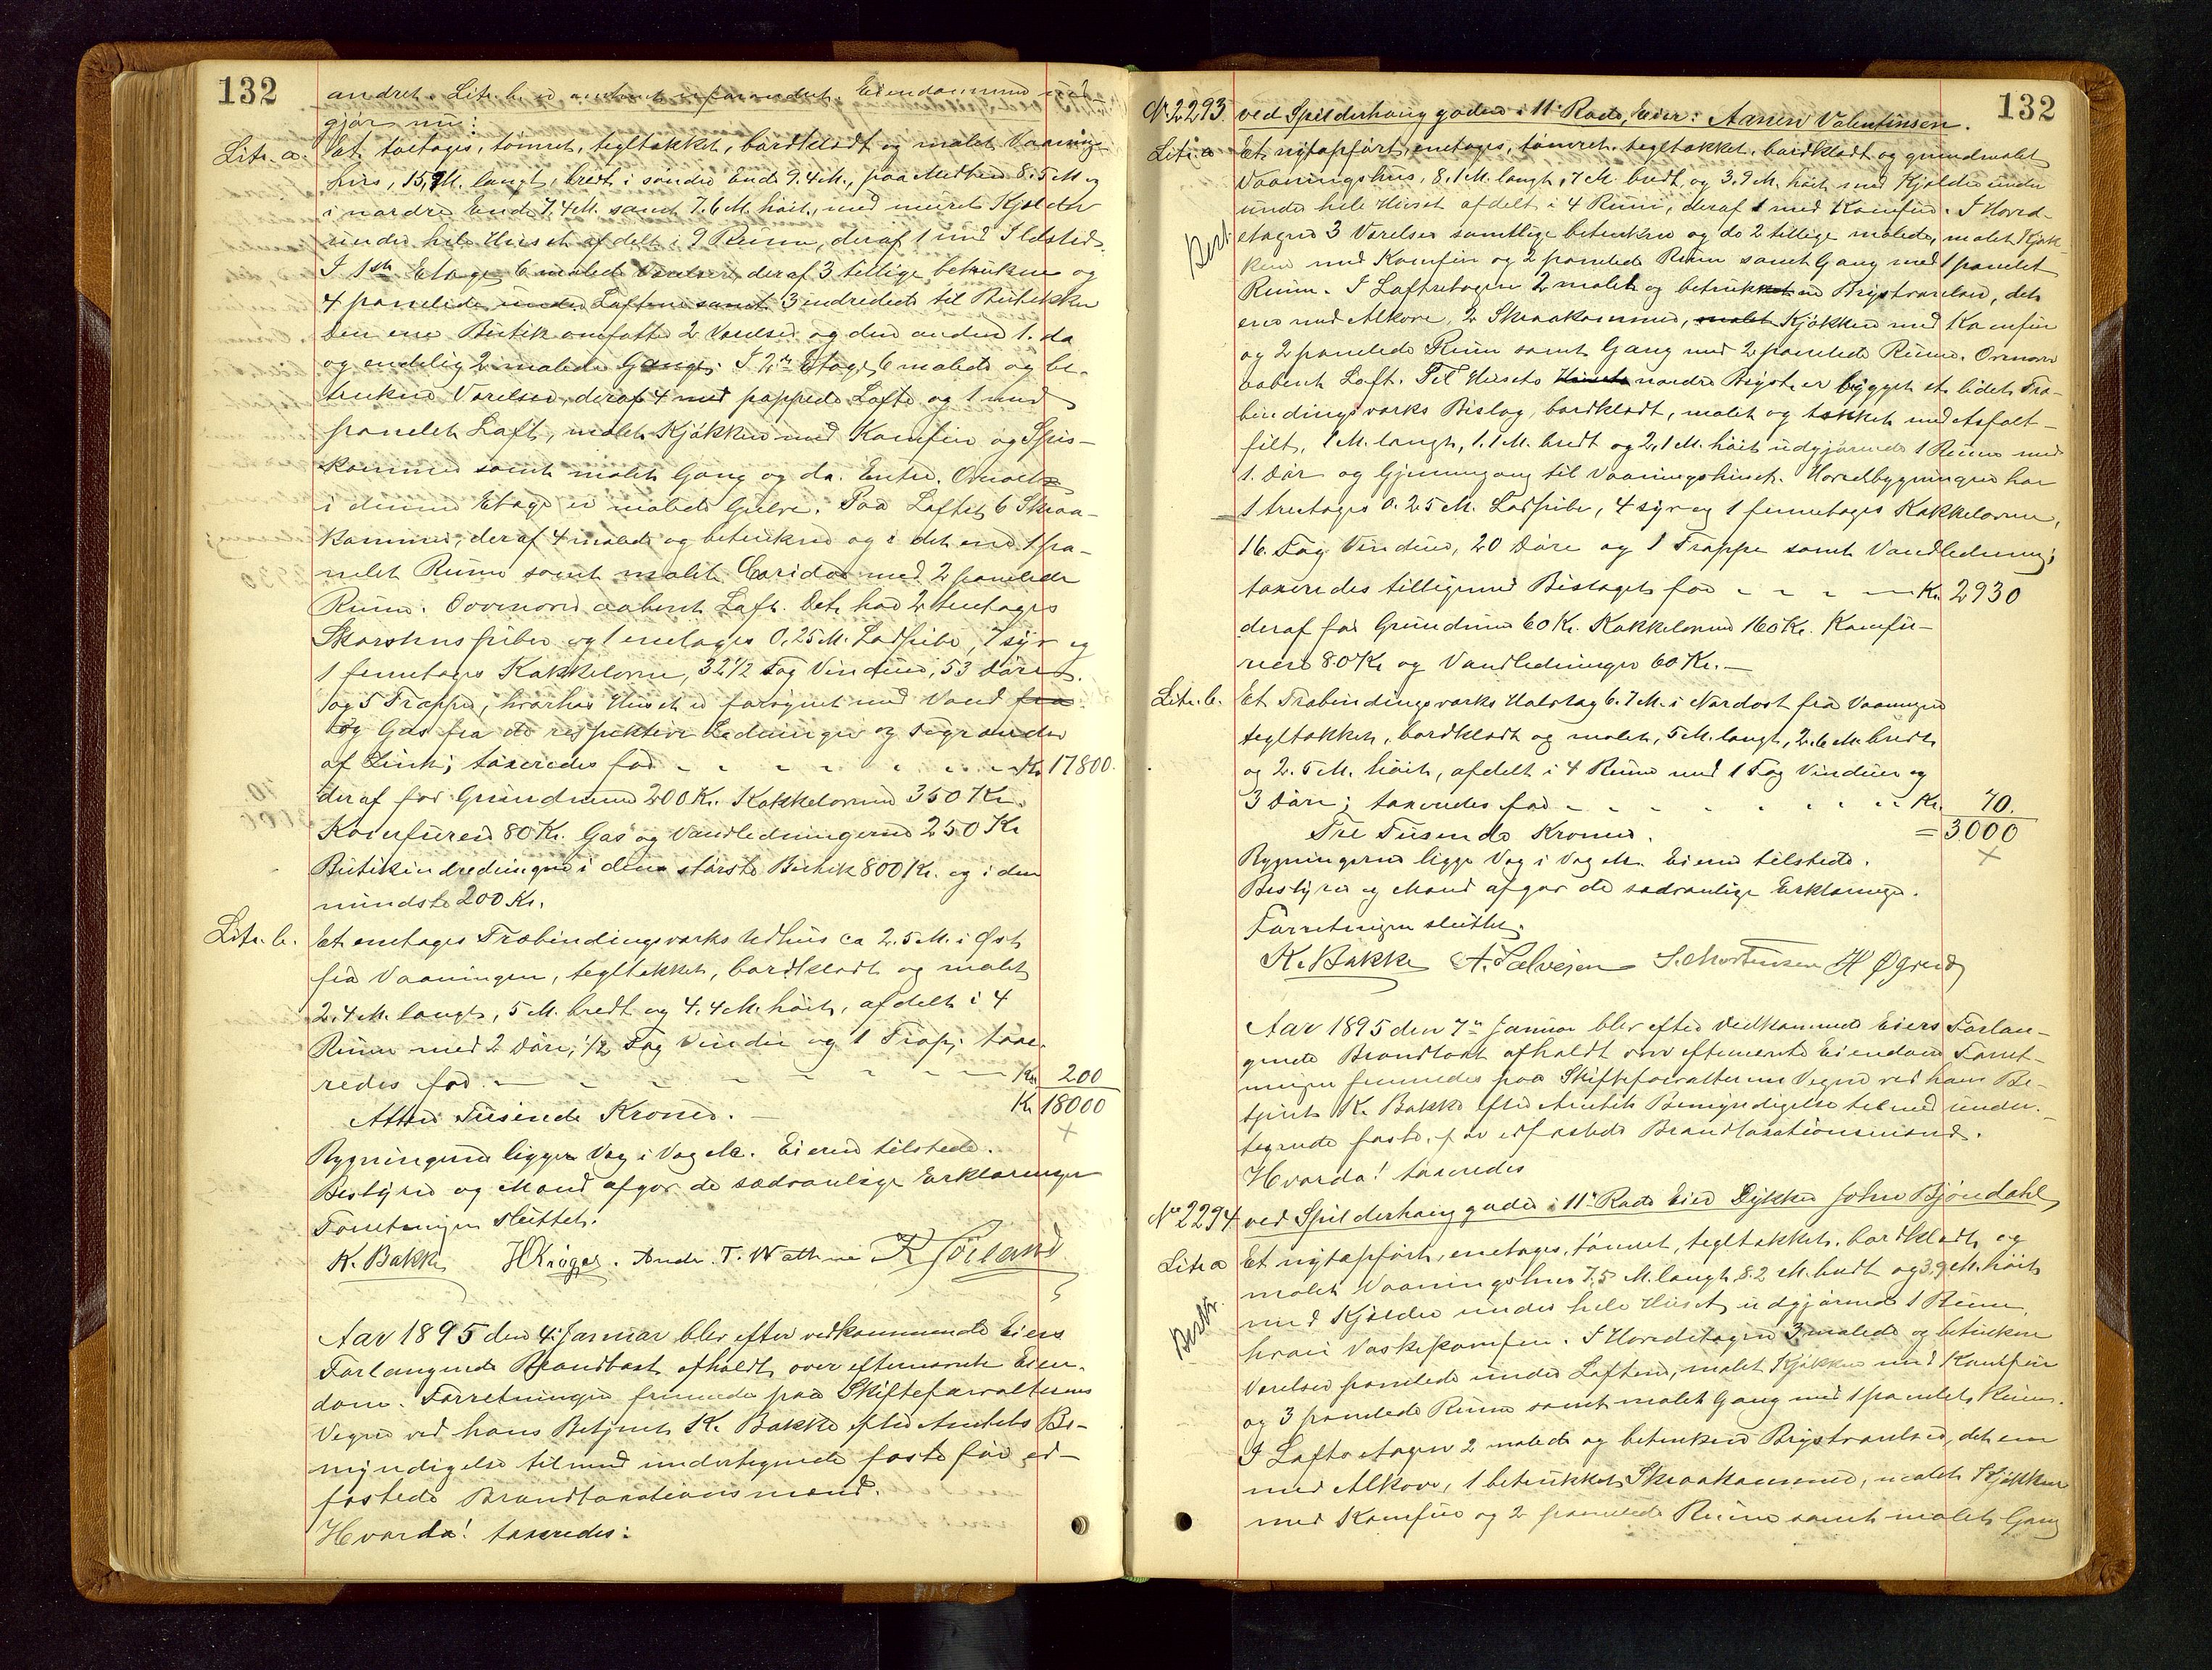 132
andret. Litr. b. er uforandret. Eiendommen ud-
gjør nu:
Litr. a. Et toetages, tømret, tegltækket, bordklædt og malet Vaanings-
hus, 15,9 M. langt, bredt i søndre Ende 9.4 M., paa Midten 8.5 M og
i nordre Ende 7.4 M. samt 7.6 M. høit, med muret Kjælder
under hele Huset afdelt i 9 Rum, deraf 1 med Ildsted.
I 1ste Etage 6 malede Værelser, deraf 3 tillige betrukne og
4 panelede under Loftene samt 3 indredede til Butikker
Den ene Butik omfatter 2 Værelser og den anden 1. do
og endelig 2 malede Gange. I 2den Etage 6 malede og be-
trukne Værelser, deraf 4 med pappede Lofte og 1 med
panelet Loft, malet Kjøkken med Komfur og Spis-
kammer samt malet Gang og do. Entre. Overalt
i denne Etage er malede Gulve. Paa Loftet 6 Skraa-
kammer, deraf 4 malede og betrukne og i det ene 1 pa-
nelet Rum samt malet Coridor med 2 panelede
Rum. Ovenover aabent Loft. Det har 2 tretages
Skorstenspiber og 1 enetages 0,25 M. Lodpibe, 7 syv og
1 femetages Kakkelovne, 32 1/2 Fag Vinduer, 53 Døre
og 5 Trapper, hvorhos Huset er forsynet med Vand fra
og Gas fra de respektive Ledninger og Tagrender
af Zink; taxeredes for - - - - - - Kr. 17800.
deraf for Grundmuren 200 Kr. Kakkelovnene 350 Kr.
Komfuren 80 Kr. Gas og Vandledningerne 250 Kr
Butikindredningen i den største Butik 800 Kr. og i den
mindste 200 Kr.
Litr. b. Et enetages Træbindingsværks Udhus ca 2.5 M. i Øst
fra Vaaningen, tegltækket, bordklædt og malet
2.4 M. langt, 5 M. bredt og 4.4 M. høit, afdelt i 4
Rum med 2 Døre, 1/2 Fag Vindu og 1 Trap; taxe-
redes for - - - - - - Kr. 200
Atten Tusinde Kroner. - Kr. 18000
Bygningerne ligger Væg i Væg M. Eieren tilstede.
Bestyrer og Mænd afgav de sædvanlige Erklæringer
Forretningen sluttet.
K. Bakke HKrøger. Andr. T. Wathne K Førland
Aar 1895 den 4. Januar blev efter vedkommende Eiers
Forlangende Brandtaxt afholdt over efternævnte Eien-
dom. Forretningen fremmedes paa Skifteforvalterens
Vegne ved hans Betjent K. Bakke efter Amtets Be-
myndigelse tilmed undertegnede faste for ed-
fæstede Brandtaxationsmænd.
Hvorda! taxeredes:
132
No 2293. ved Spilderhauggaden i 11te Rode, Eier: Aanen Valentinsen.
Litr. a Et nyopført, enetages, tømret, tegltækket, bordklædt og grundmalet
Vaaningshus, 8.1 M. langt, 7 M. bredt, og 3.9 M. høit med Kjælder under
under hele Huset afdelt i 4 Rum, deraf 1 med Komfur. I Hoved-
etagen 3 Værelser samtlige betrukne og do 2 tillige malede, malet Kjøk-
ken med Komfur og 2 panelede Rum samt Gang med 1 panelet
Rum. I Loftsetagen 2 malet og betrukkne Brystværelser, det
ene med Alkove, 2 Skraakammer, malet Kjøkken med Komfur
og 2 panelede Rum samt Gang med 2 panelede Rum. Ovenover
aabent Loft. Til Husets Husets nordre Bryst er bygget et lidet Træ-
bindingsværks Bislag, bordklædt, malet og tækket med Asfalt-
filt, 1 M. langt, 1.1 M. bredt og 2,1 M. høit udgjørende 1 Rum med
1. Dør og Gjennemgang til Vaaningshuset. Hovedbygningen har
1 tretages 0.25 M. Lodpibe, 4 syv og 1 femetages Kakkelovne,
16. Fag Vinduer, 20 Døre og 1 Trappe samt Vandledning;
taxeredes tilligemed Bislaget for - - - - Kr. 2930
deraf for Grundmuren 60 Kr. Kakkelovnene 160 Kr. Komfu-
rene 80 Kr og Vandledningen 60 Kr. -
Litr. b. Et Træbindingsværks Halvtag 6.7 M. i Nordost fra Vaaningen
tegltækket, bordklædt og malet, 5 M. langt, 2.6 M. bredt
og 2.5 M. høit, afdelt i 4 Rum med 1 Fag Vinduer og
3 Døre; taxeredes for - - - - - - Kr. 70.
Tre Tusende Kroner. = 3000
Bygningerne ligge Væg i Væg M. Eieren tilstede.
Bestyrer og Mænd afgav de sædvanlige Erklæringer.
Forretningen sluttet.
K. Bakke A. Salvesen S. Mortensen
Aar 1895 den 7de Januar blev efter vedkommende Eiers Forlan-
gende Brandtaxt afholdt over efternævnte Eiendom Forret-
ningen fremmedes paa Skifteforvalterens Vegne ved hans Be-
tjent K. Bakke efter Amtets Bemyndigelse tilmed under-
tegnede faste, for edfæstede Brandtaxationsmænd.
Hvorda! taxeredes
No 2294 ved Spilderhauggaden i 11te Rode Eier Dykker John Bjøndahl
Litr a Et nyopført, enetages, tømret, tegltækket, bordklædt og
malet Vaaningshus 7.5 M. langt, 8.2 M. bredt og 3,9 M. høit
med Kjælder under hele Huset udgjørende 1 Rum,
hvori Vaskekomfur. I Hovedetagen 3 malede og betrukne
Værelser panelede under Loftene, malet Kjøkken med Komfur
og 3 panelede Rum samt malet Gang med 1 panelet Rum.
I Loftsetagen 2 malede og betrukne Brystværelser, det ene
med Alkove, 1 betrukket Skraakammer, malet Kjøkken
med Komfur og 2 panelede Rum samt malet Gang